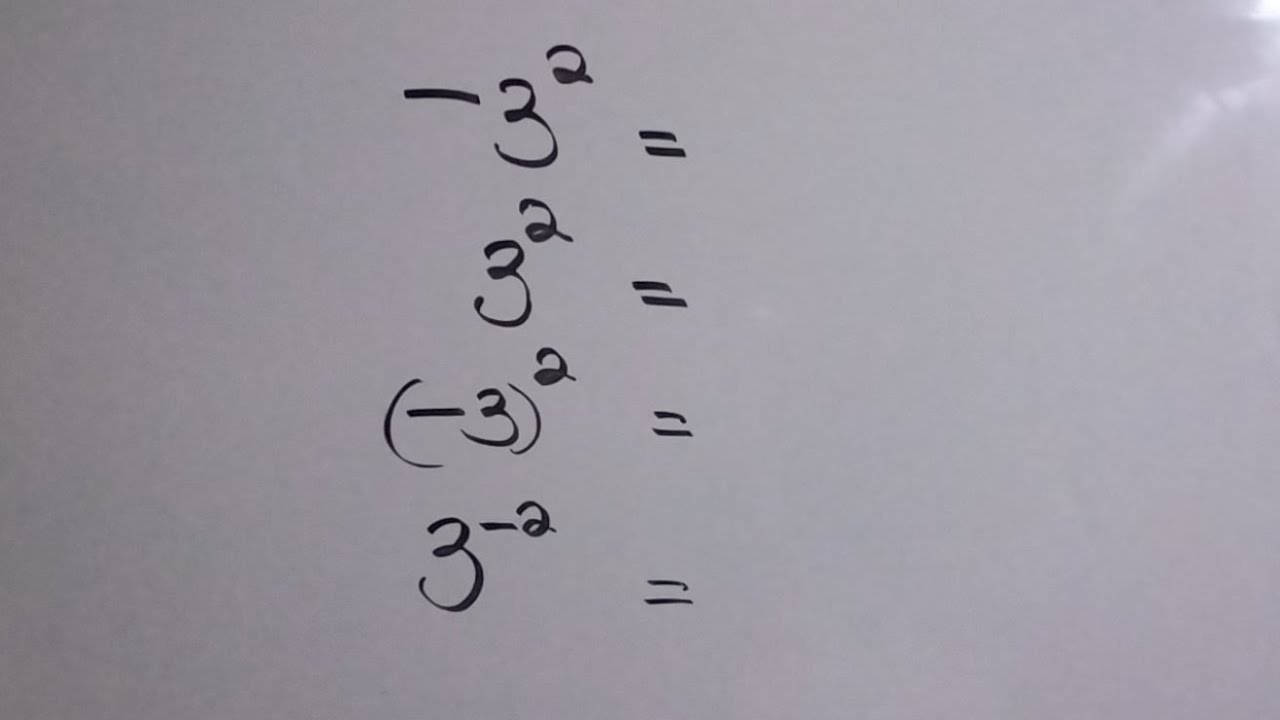 -3² =
3² =
(-3)² =
3⁻² =